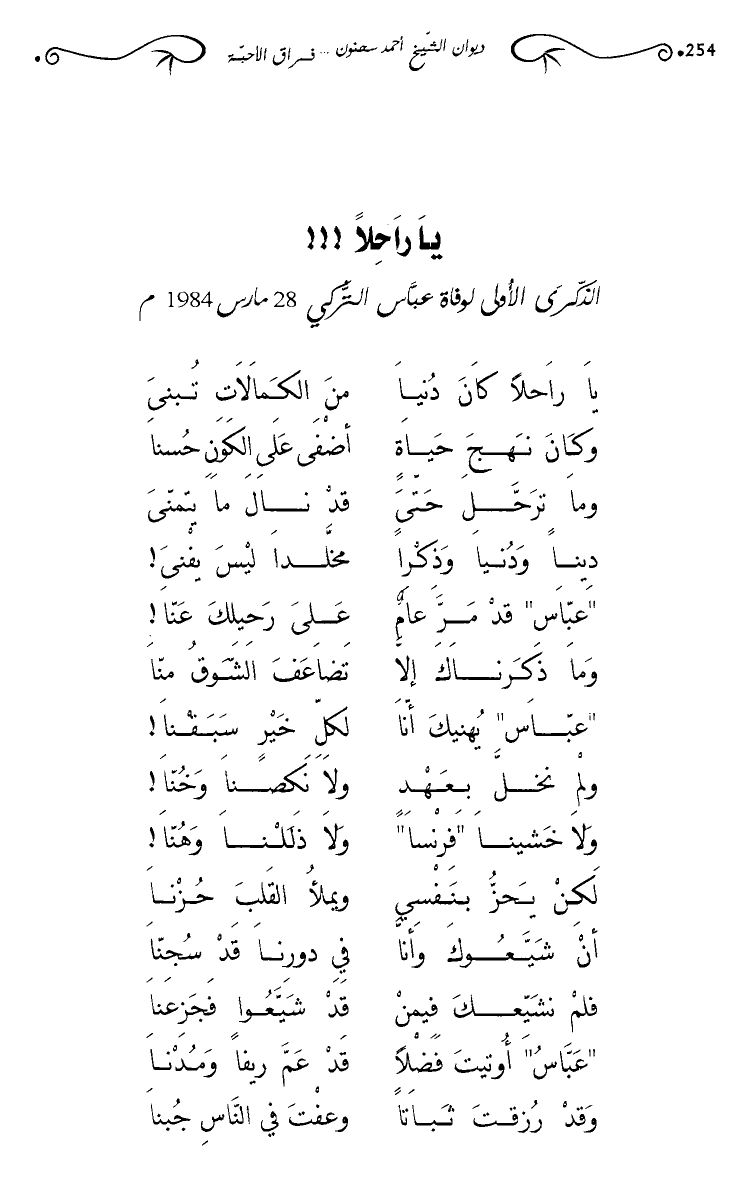 254• ديوان الشّيخ أحمد سحنون ... فـراق الأحبّة •
يَا رَاحِلاً !!!
الذّكْرَى الأُولى لوفاة عبَّاس التـُّركي 28 مارس 1984 م
يَا رَاحلاً كَانَ دُنيَـا منَ الكَـمَالَات تُـبنىَ
وكَانَ نـهَـجَ حَيـاة أضْفَى عَلَى الكَونِ حُسنا
وما ترَحَّـــلَ حَتىَّ قدْ نـــالَ ما يتَمنّىَ
دينـــاً ودُنيـا وَذكْراً مخلَّـــدا ليْسَ يفْنىَ!
"عبّاس" قدْ مَـرَّ عامٌ عَلـىَ رَحيلكَ عَنّا!
وَما ذكَرنـــاكَ إلاَّ تضاعَفَ الشَّـوقُ منّا
"عبّـــاس" يُهنيكَ أنّا لكلّ خَيْرٍ سَبَقْـنـا!
ولمْ نخـــلَّ بـعَـهْد ولاَ نَكصْـــنا وَخُنّا!
ولاَ خَشينــا "فرنْسا" ولاَ ذلَلْـنــا وَهُنّا!
لَكنْ يَـحزُّ بـنَـفْسي ويملأُ القلبَ حُـزْنـا
أنْ شَيَّـعُـــوكَ وأنَّا في دورنـا قدْ سُجنّا
فلمْ نشيّعـــكَ فيمنْ قدْ شَيَّعُـوا فجَزعنا
"عَبَّاسُ" أُوتيتَ فَضْلاً قدْ عَمَّ ريفاً وَمُدْنـا
وَقدْ رُزقـتَ ثَـبـاتاً وعفْتَ في النَّاسِ جُبنا